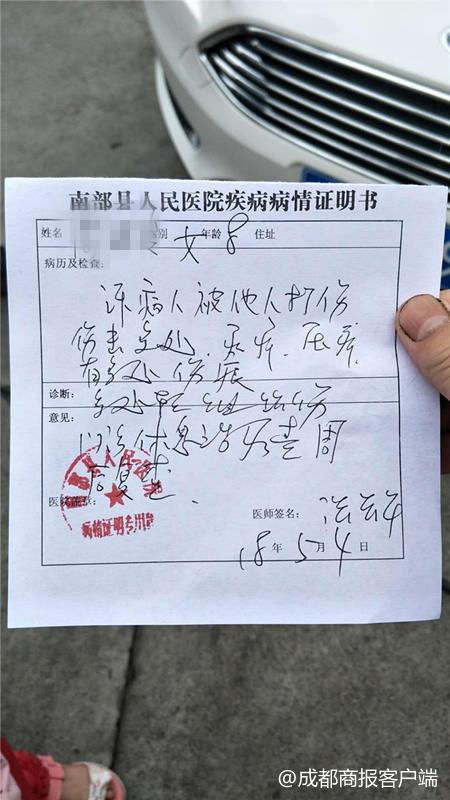 南部县人民医院疾病病情证明书
姓名 别 女 年龄 8 住址
病历及检查:
诉病人被他人打伤
伤害多处、疼痛、压痛
有多处伤痕
诊断: 多处软组织损伤
意见:
门诊休息治疗壹周
后复查、
医院盖章:
南部县人民医院
病情证明专用章
医师签名:
18 年 5 月 4 日
@成都商报客户端